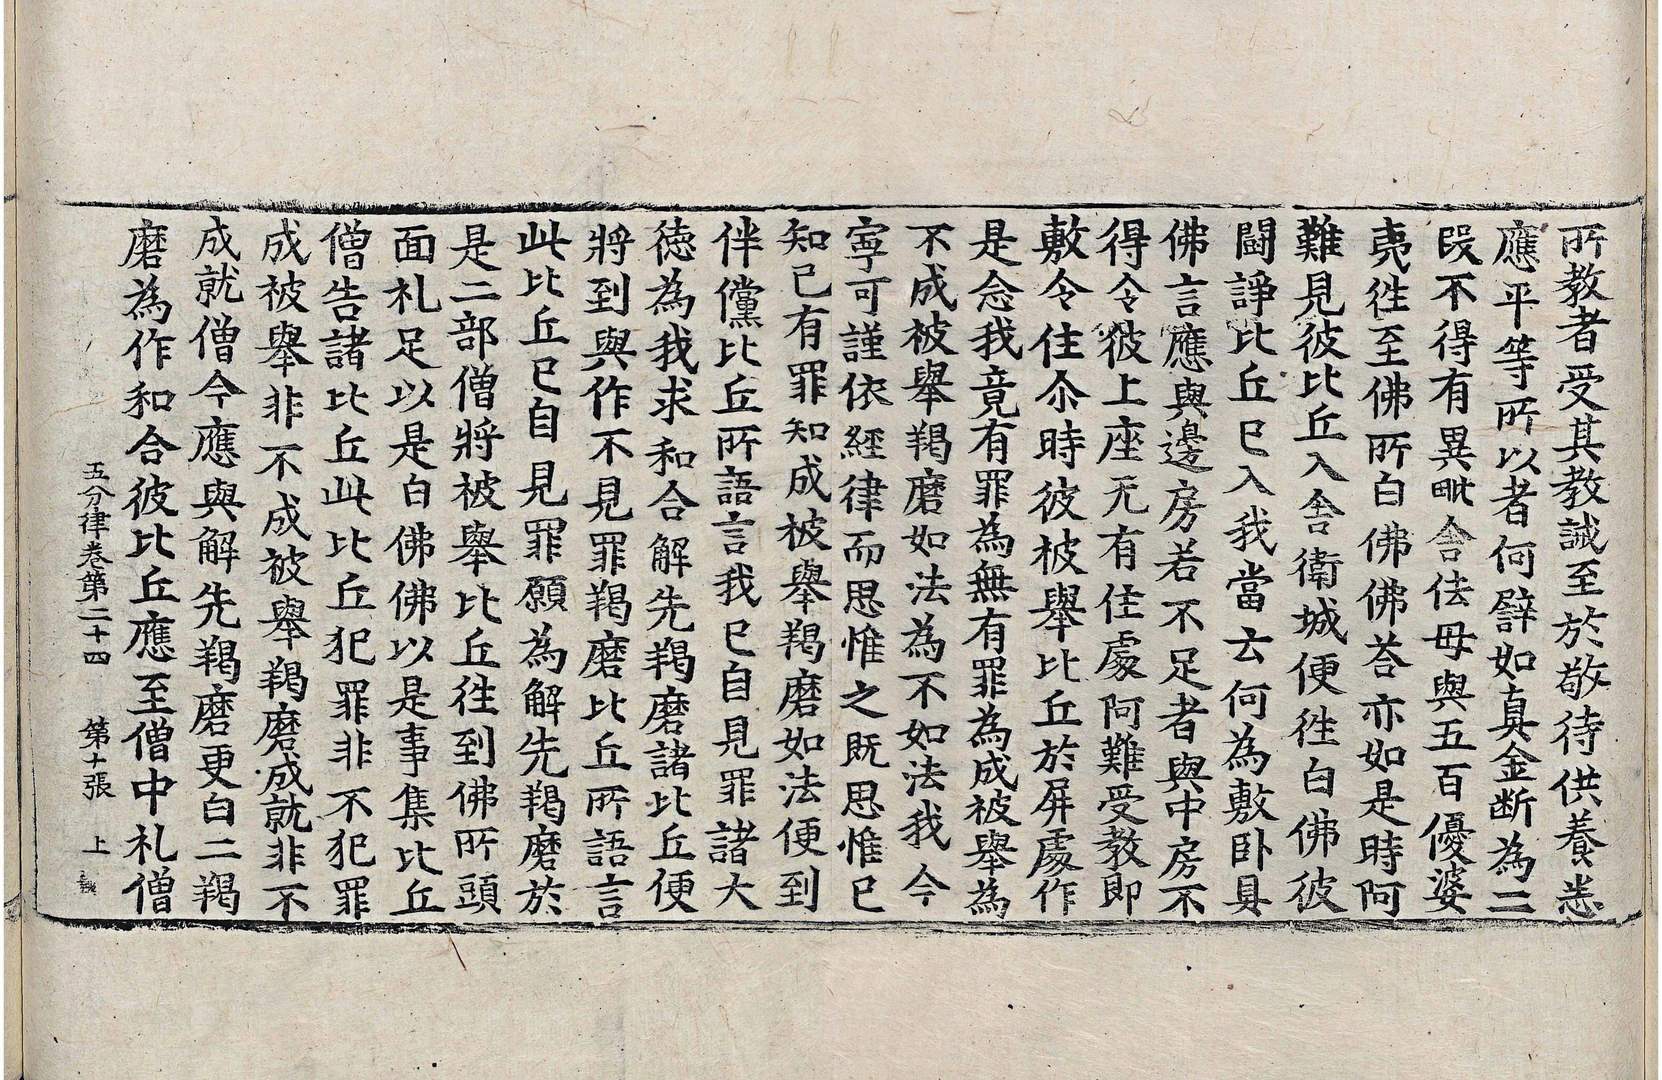 所教者受其教誡至於敬待供養悉
應平等所以者何譬如真金断為二
段不得有異毗舍佉母與五百優婆
夷徃至佛所白佛佛荅亦如是時阿
難見彼比丘入舎衛城便徃白佛彼
闘諍比丘已入我當云何為敷卧具
佛言應與邊房若不足者與中房不
得令彼上座无有住處阿難受教即
敷令住尒時彼被舉比丘於屏處作
是念我竟有罪為無有罪為成被舉為
不成被舉羯磨如法為不如法我今
寧可謹依經律而思惟之既思惟已
知已有罪知成被舉羯磨如法便到
伴儻比丘所語言我已自見罪諸大
徳為我求和合解先羯磨諸比丘便
將到與作不見罪羯磨比丘所語言
此比丘已自見罪願為解先羯磨於
是二部僧將被舉比丘徃到佛所頭
面礼足以是白佛佛以是事集比丘
僧告諸比丘此比丘犯罪非不犯罪
成被舉非不成被舉羯磨成就非不
成就僧今應與解先羯磨更白二羯
磨為作和合彼比丘應至僧中礼僧
五分律卷第二十四 第十張 上